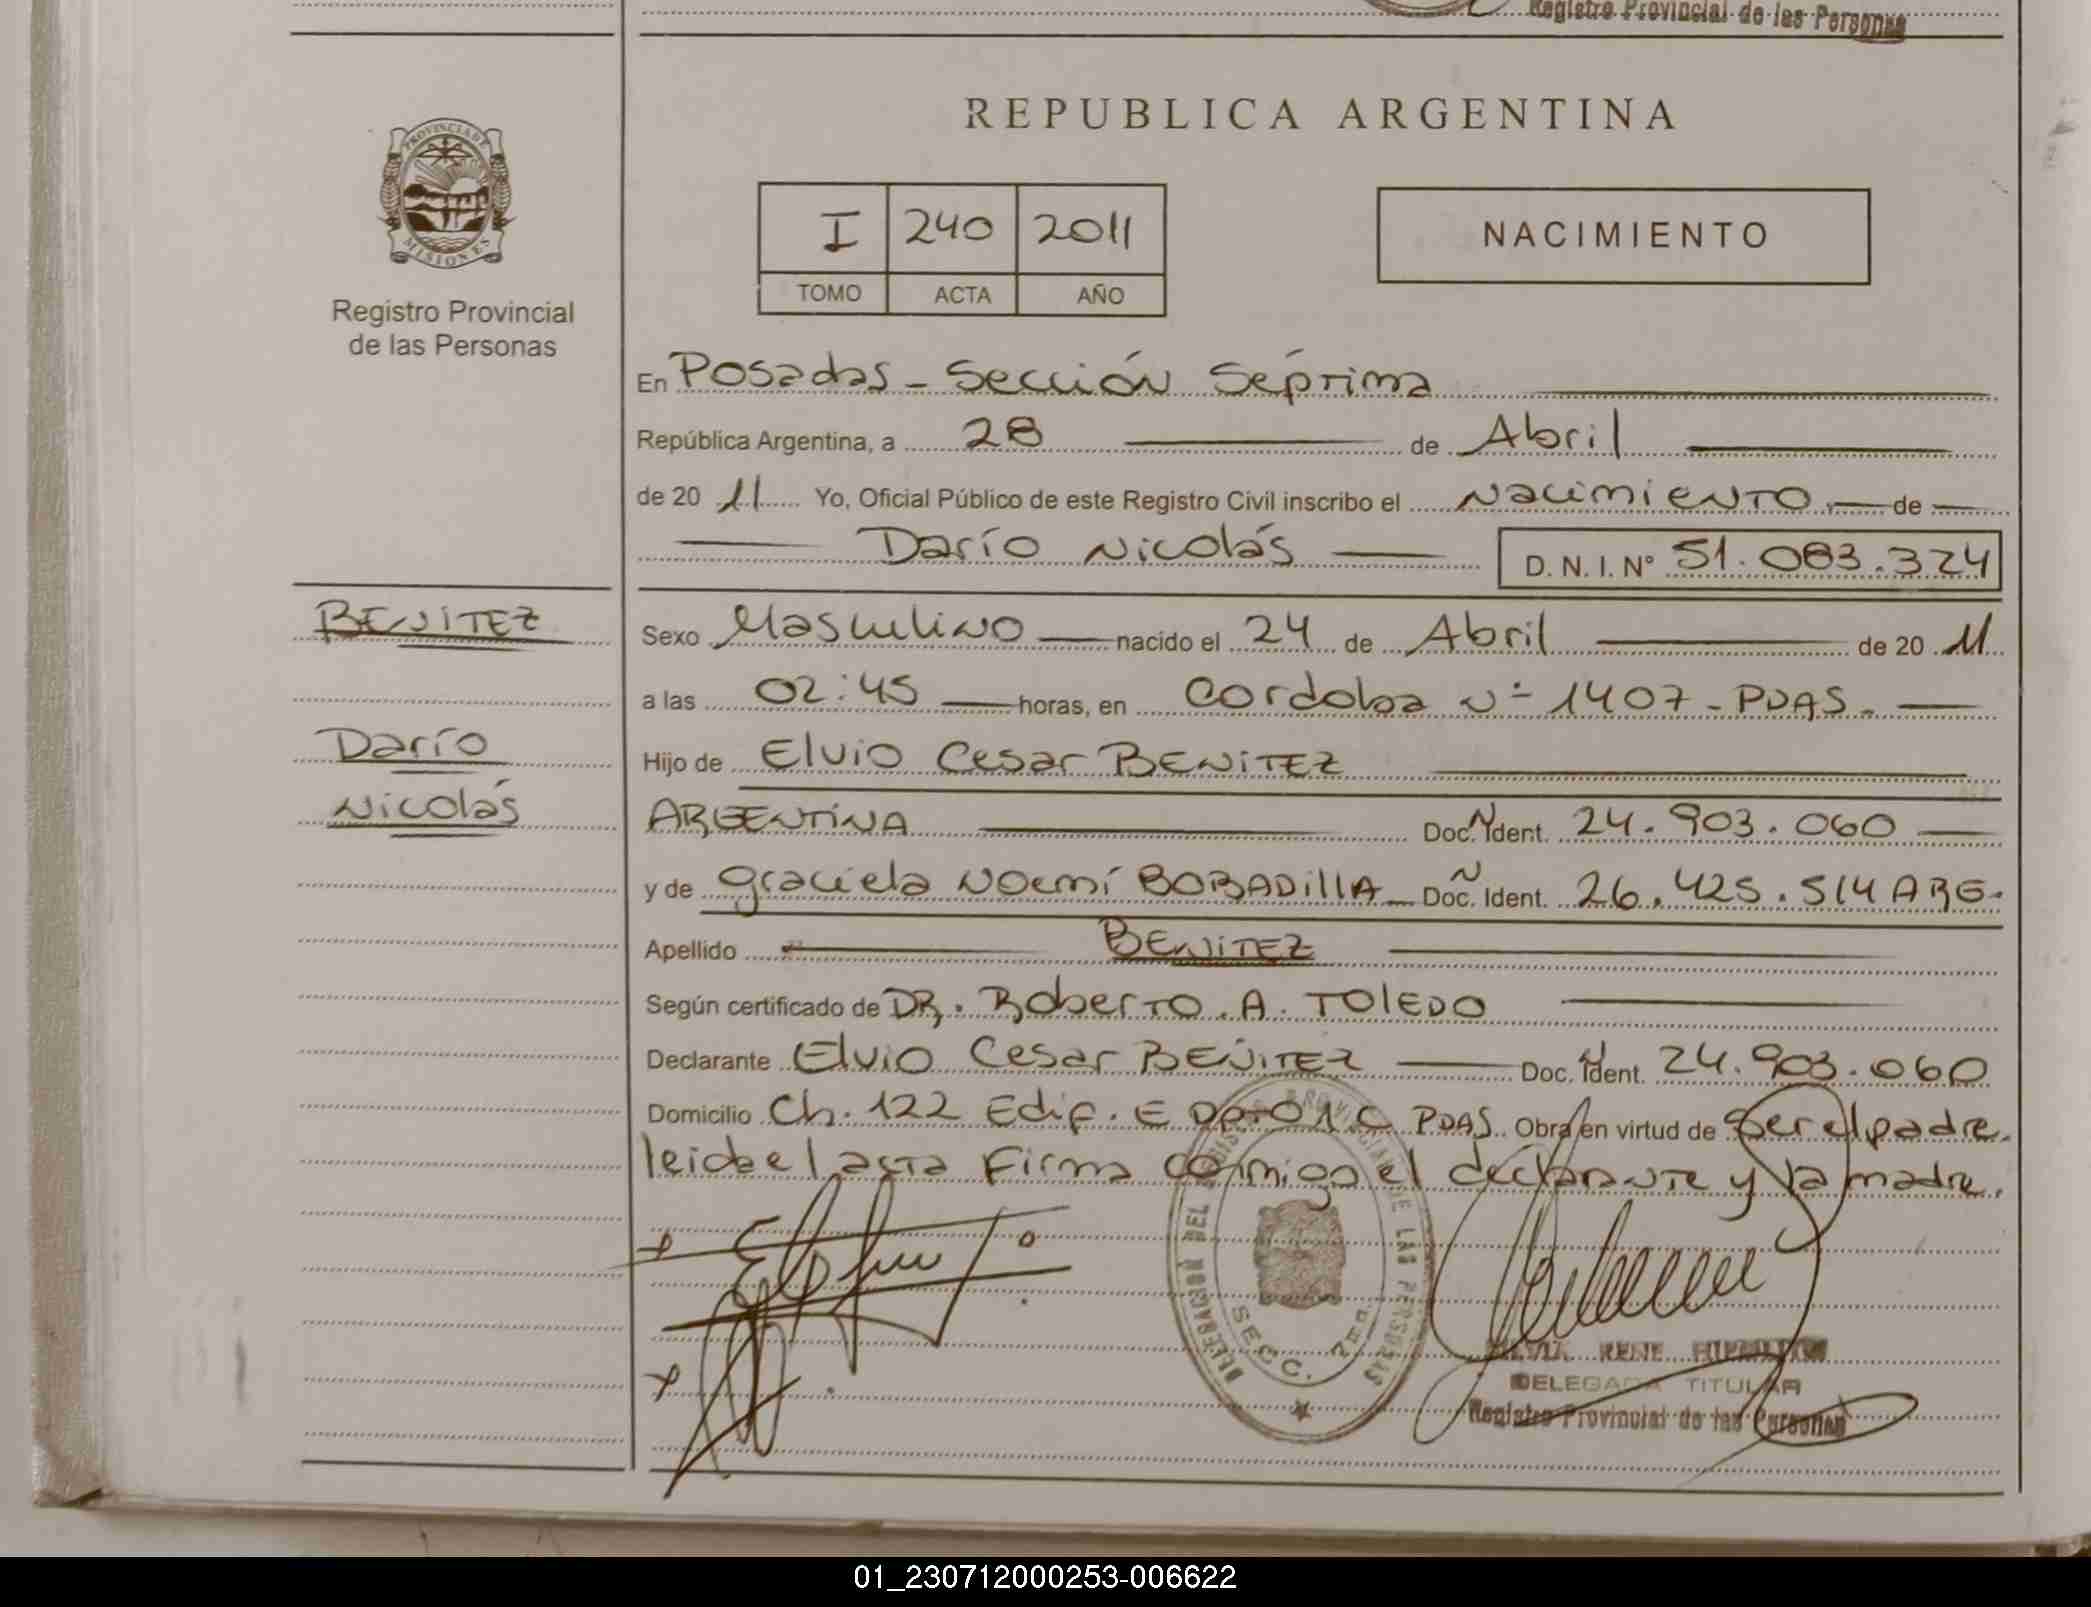 Registro Provincial de las Personas
PROVINCIA DE
MISIONES
Registro Provincial
de las Personas
REPUBLICA ARGENTINA
I 240 2011
TOMO ACTA AÑO
NACIMIENTO
En Posadas - Sección Séptima
República Argentina, a 28 de Abril
de 20 11 Yo, Oficial Público de este Registro Civil inscribo el Nacimiento de
Darío Nicolás D. N. I. N° 51.083.324
BENITEZ
Darío
Nicolás
Sexo Masculino nacido el 24 de Abril de 20 11
a las 02:45 horas, en Cordoba N° 1407 - PDAS.
Hijo de Elvio Cesar BENITEZ
ARGENTINA Doc. N Ident. 24.903.060
y de Graciela Noemí BOBADILLA Doc. N Ident. 26.425.514 ARG.
Apellido BENITEZ
Según certificado de DR. Roberto. A. TOLEDO
Declarante Elvio Cesar BENITEZ Doc. N Ident. 24.903.060
Domicilio Ch. 122 Edif. E DPTO 1 C PDAS. Obra en virtud de Ser el padre.
leida el acta Firma conmigo el declarante y la madre.
DELEGACIÓN DEL REGISTRO PROVINCIAL DE LAS PERSONAS
SECC. 7ma.
RENE
DELEGADA TITULAR
Registro Provincial de las Personas
01_230712000253-006622